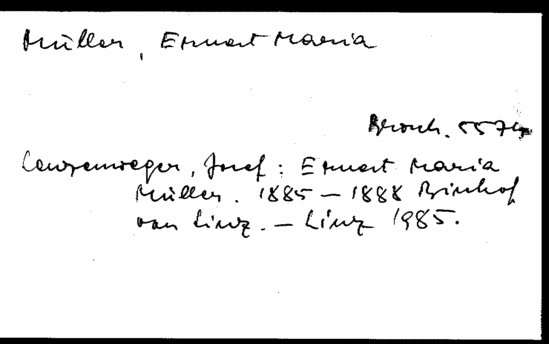 Müller, Ernest Maria
Brosch. 5574
Lenzenweger, Josef: Ernest Maria
Müller. 1885 – 1888 Bischof
von Linz. – Linz 1985.